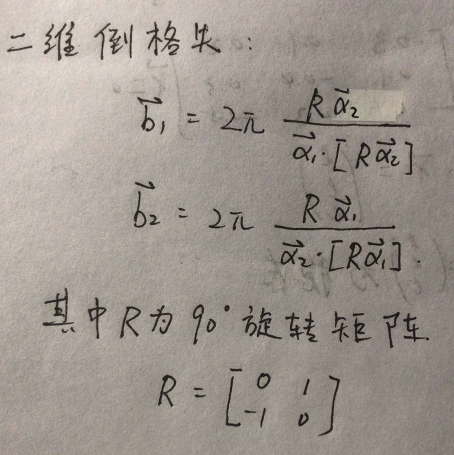 二维倒格矢:
b⃗₁ = 2π Rα⃗₂ / α⃗₁·[Rα⃗₂]
b⃗₂ = 2π Rα⃗₁ / α⃗₂·[Rα⃗₁].
其中R为90°旋转矩阵.
R = [0 1; -1 0]